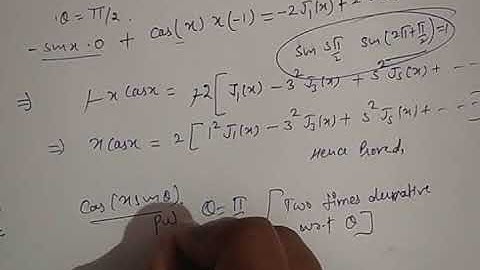 θ = π/2.
- sinx · 0 + cos(x) x(-1) = -2J₁(x) + 2
sin 5π/2 sin(2π+π/2)=1
⇒ -x cosx = -2[J₁(x) - 3² J₃(x) + 5² J₅(x) + ---
⇒ x cosx = 2[1² J₁(x) - 3² J₃(x) + 5² J₅(x) + ---]
Hence Proved,
cos(x sinθ) θ = π [Two times derivative
w.r.t θ]